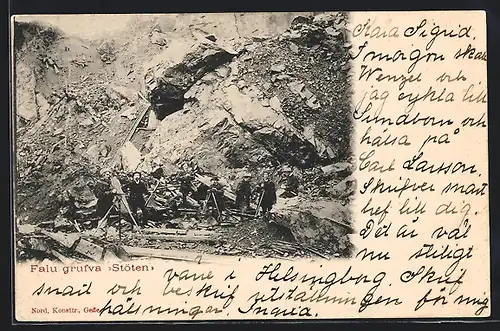 Kära Sigrid.
I morgon ska
Wenzel och
jag cykla till
Sundborn och
hälsa på
Carl Larsson.
Skrifver snart
bref till dig.
Det är väl
nu stiligt
Falu grufva ›Stöten‹
vane i Helsingborg. Skrif
snart och beskrif utställningen för mig
Nord. Konsttr., Gefle
hälsningar. Ingrid.